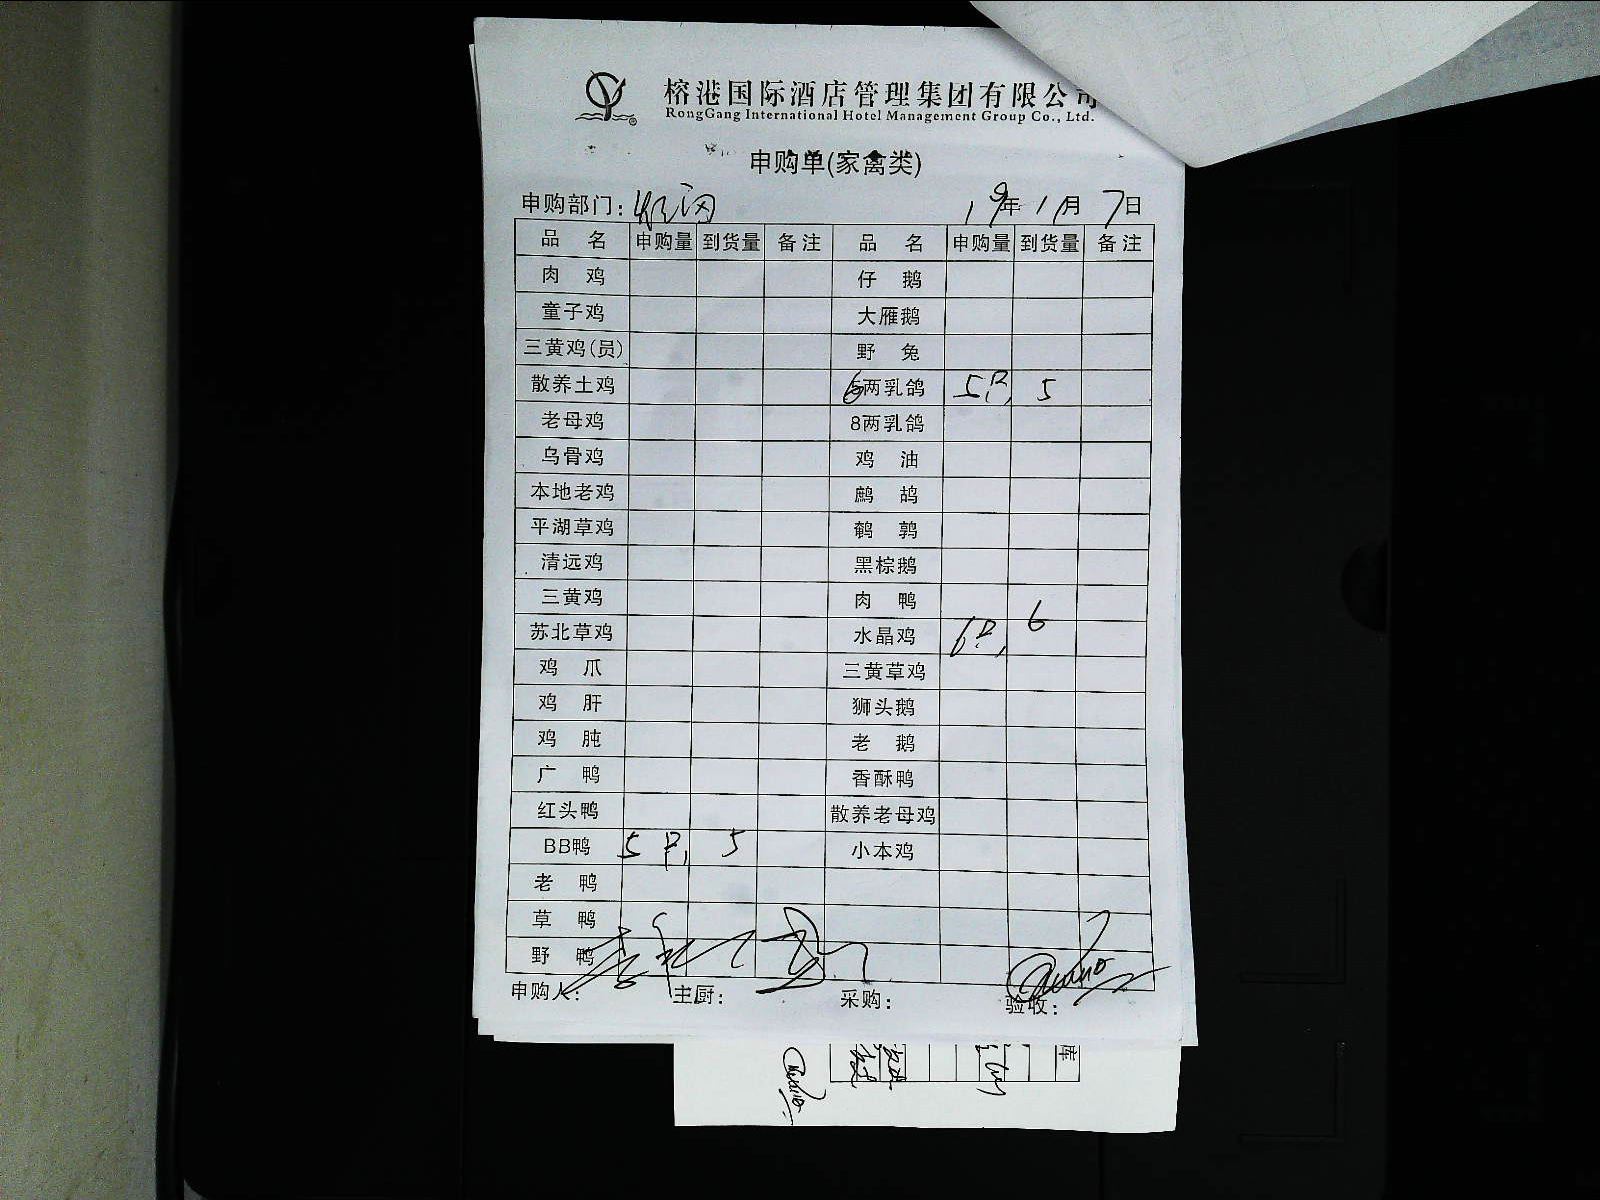 榕港国际酒店管理集团有限公司
RongGang International Hotel Management Group Co., Ltd.
申购单(家禽类)
申购部门: 19年 11月 7日
品 名 申购量 到货量 备注 品 名 申购量 到货量 备注
肉 鸡 仔 鹅
童子鸡 大雁鹅
三黄鸡(员) 野 兔
散养土鸡 6两乳鸽 5只 5
老母鸡 8两乳鸽
乌骨鸡 鸡 油
本地老鸡 鹧 鸪
平湖草鸡 鹌 鹑
清远鸡 黑棕鹅
三黄鸡 肉 鸭
苏北草鸡 水晶鸡 6只 6
鸡 爪 三黄草鸡
鸡 肝 狮头鹅
鸡 肫 老 鹅
广 鸭 香酥鸭
红头鸭 散养老母鸡
BB鸭 5只 5 小本鸡
老 鸭
草 鸭
野 鸭
申购人: 主厨: 采购: 验收:
库